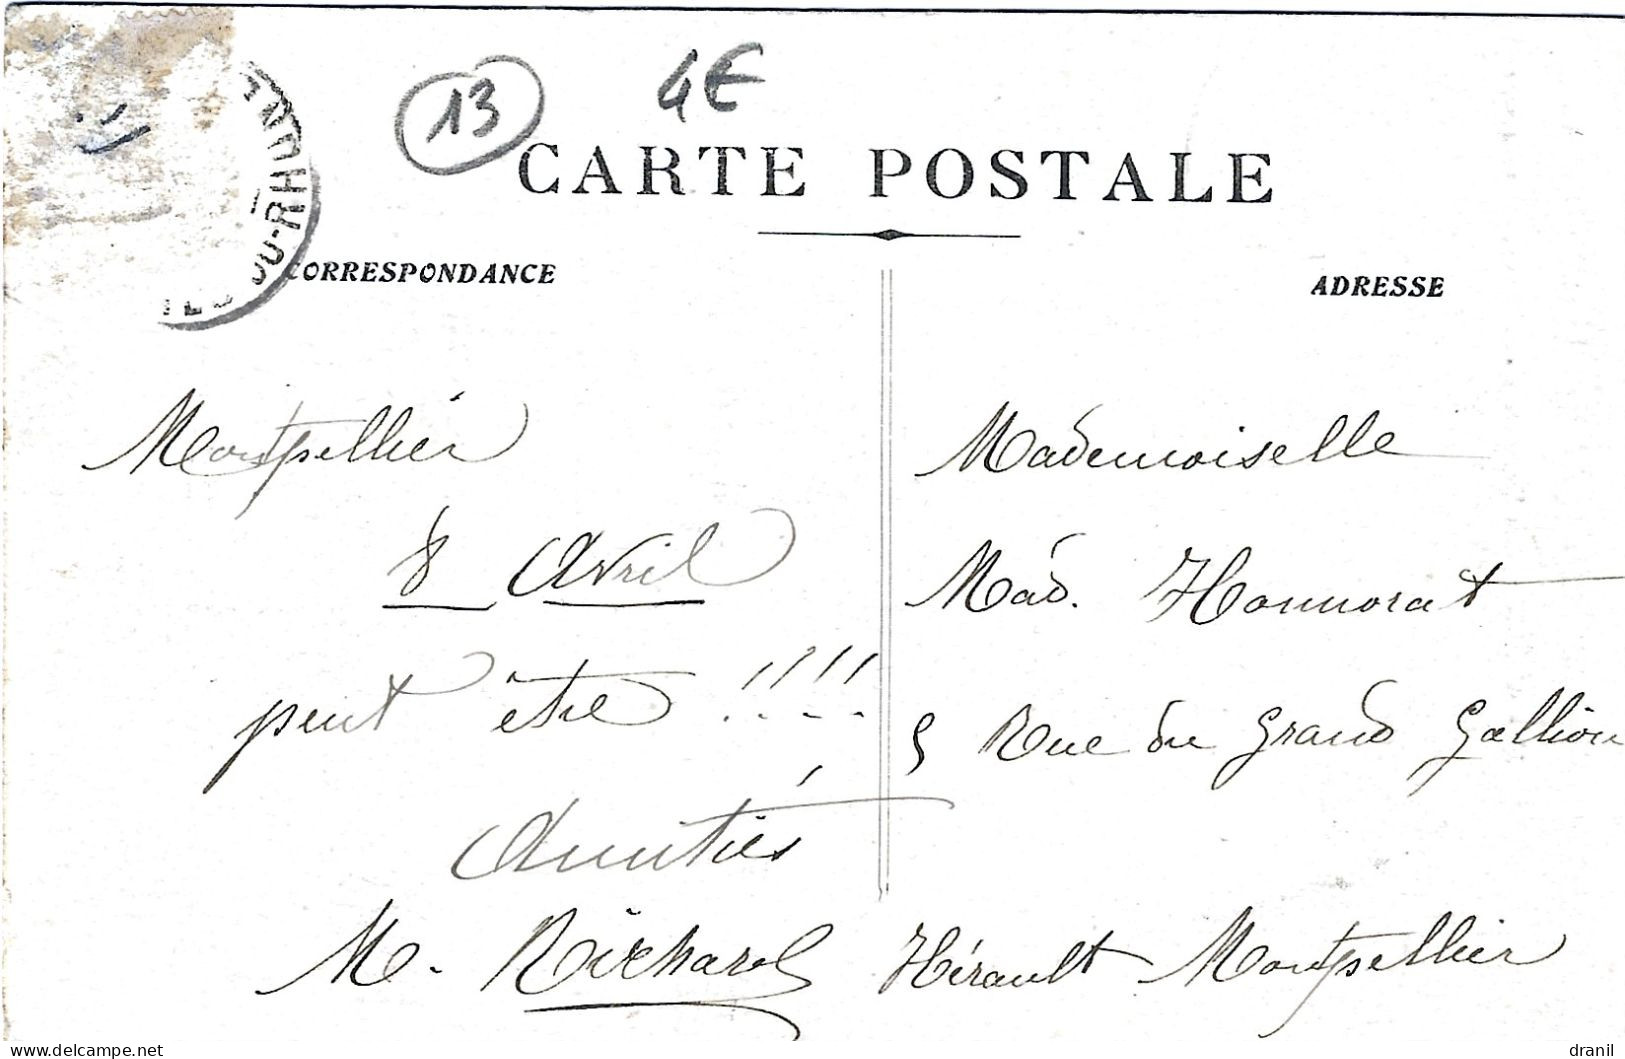 13
4€
CARTE POSTALE
DU-RHÔNE
CORRESPONDANCE
ADRESSE
Montpellier
8 Avril
peut être !!!!
Amitiés
M. Richard
Mademoiselle
Mad. Honnorat
5 Rue du Grand Gallion
Hérault Montpellier
www.delcampe.net
dranil